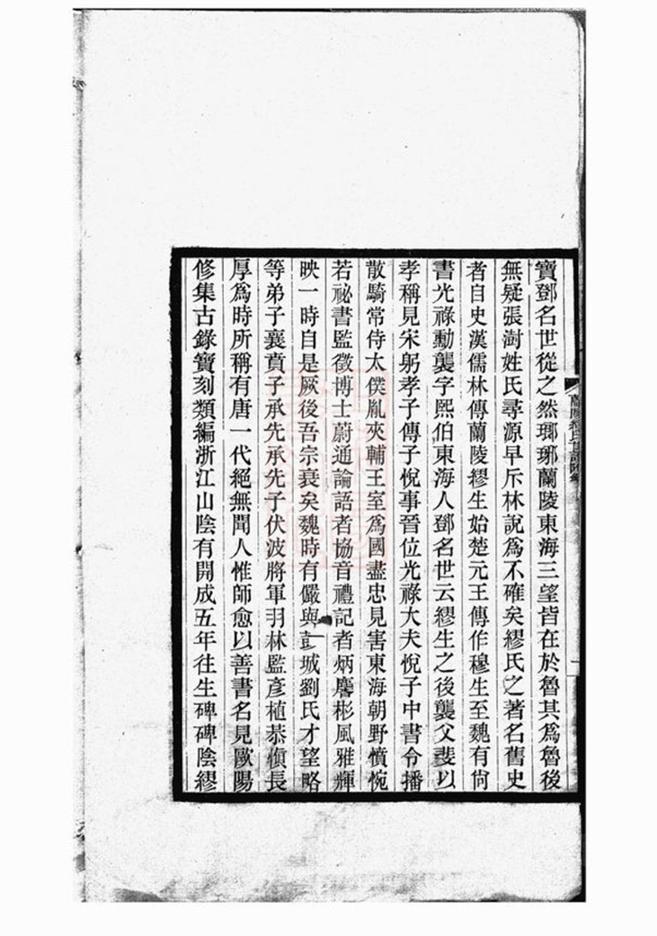 實鄧名世從之然瑯琊蘭陵東海三望皆在於魯其為魯後
無疑張澍姓氏尋源早斥林說為不確矣繆氏之著名舊史
者自史漢儒林傳蘭陵繆生始楚元王傳作穆生至魏有尙
書光祿勳襲字熙伯東海人鄧名世云繆生之後襲父斐以
孝稱見宋躬孝子傳子悅事晉位光祿大夫悅子中書令播
散騎常侍太僕胤夾輔王室為國盡忠見害東海朝野憤惋
若祕書監徵博士蔚通論語者協音禮記者炳麐彬風雅輝
映一時自是厥後吾宗衰矣魏時有儼與彭城劉氏才望略
等弟子襄賁子承先承先子伏波將軍羽林監彥植恭傎長
厚為時所稱有唐一代絕無聞人惟師愈以善書名見歐陽
修集古錄寶刻類編浙江山陰有開成五年往生碑碑陰繆